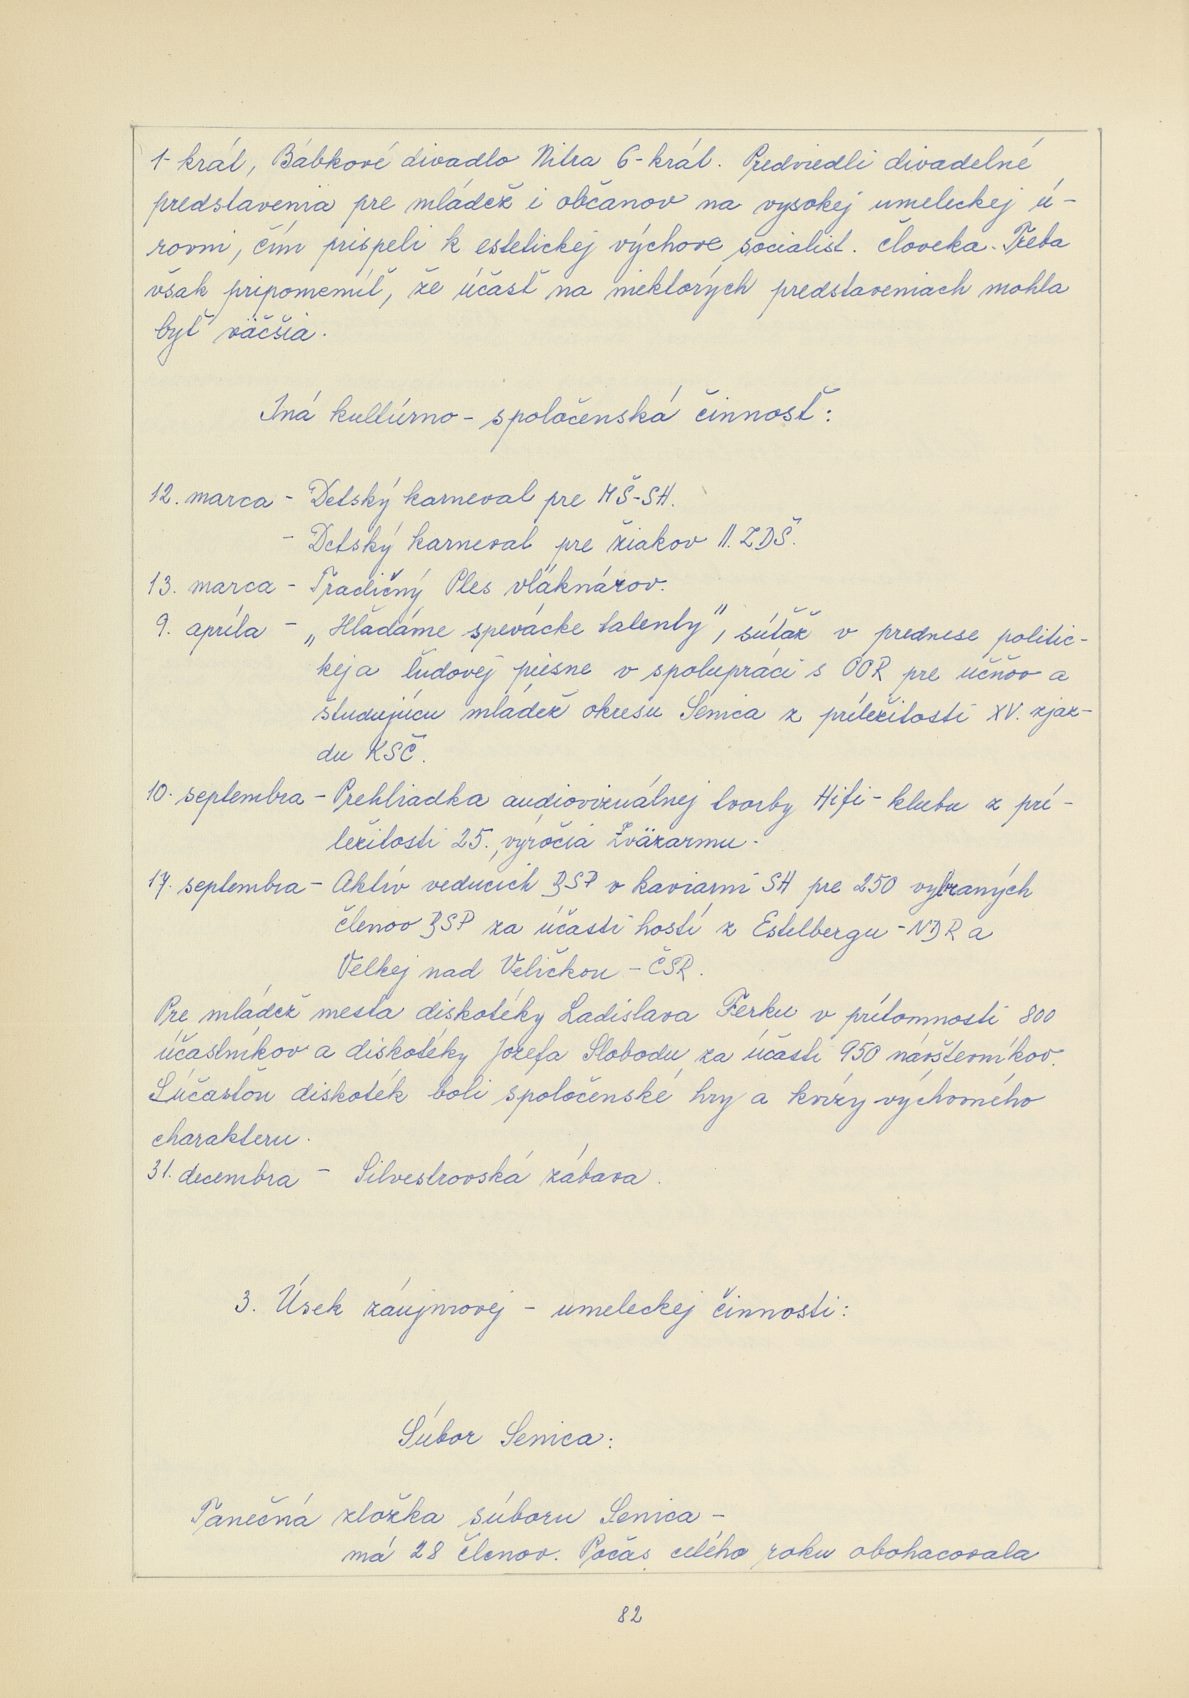 1-krát, Bábkové divadlo Nitra 6-krát. Predviedli divadelné
predstavenia pre mládež i občanov na vysokej umeleckej ú-
rovni, čím prispeli k estetickej výchove socialist. človeka. Treba
však pripomenúť, že účasť na niektorých predstaveniach mohla
byť väčšia.
Iná kultúrno-spoločenská činnosť:
12. marca - Detský karneval pre MŠ-SH.
- Detský karneval pre žiakov II. ZDŠ.
13. marca - Tradičný Ples vláknárov.
9. apríla - „Hľadáme spevácke talenty", súťaž v prednese politic-
kej a ľudovej piesne v spolupráci s OOR pre učňov a
študujúcu mládež okresu Senica z príležitosti XV. zjaz-
du KSČ.
10. septembra - Prehliadka audiovizuálnej tvorby Hifi-klubu z prí-
ležitosti 25. výročia Zväzarmu.
17. septembra - Aktív vedúcich BSP v kaviarni SH pre 250 vybraných
členov BSP za účasti hostí z Estelbergu - NDR a
Velkej nad Veličkou - ČSR.
Pre mládež mesta diskotéky Ladislava Ferku v prítomnosti 800
účastníkov a diskotéky Jozefa Slobodu za účasti 950 návštevníkov.
Súčasťou diskoték boli spoločenské hry a kvízy výchovného
charakteru.
31. decembra - Silvestrovská zábava.
3. Úsek záujmovej - umeleckej činnosti:
Súbor Senica:
Tanečná zložka súboru Senica -
má 28 členov. Počas celého roku obohacovala
82